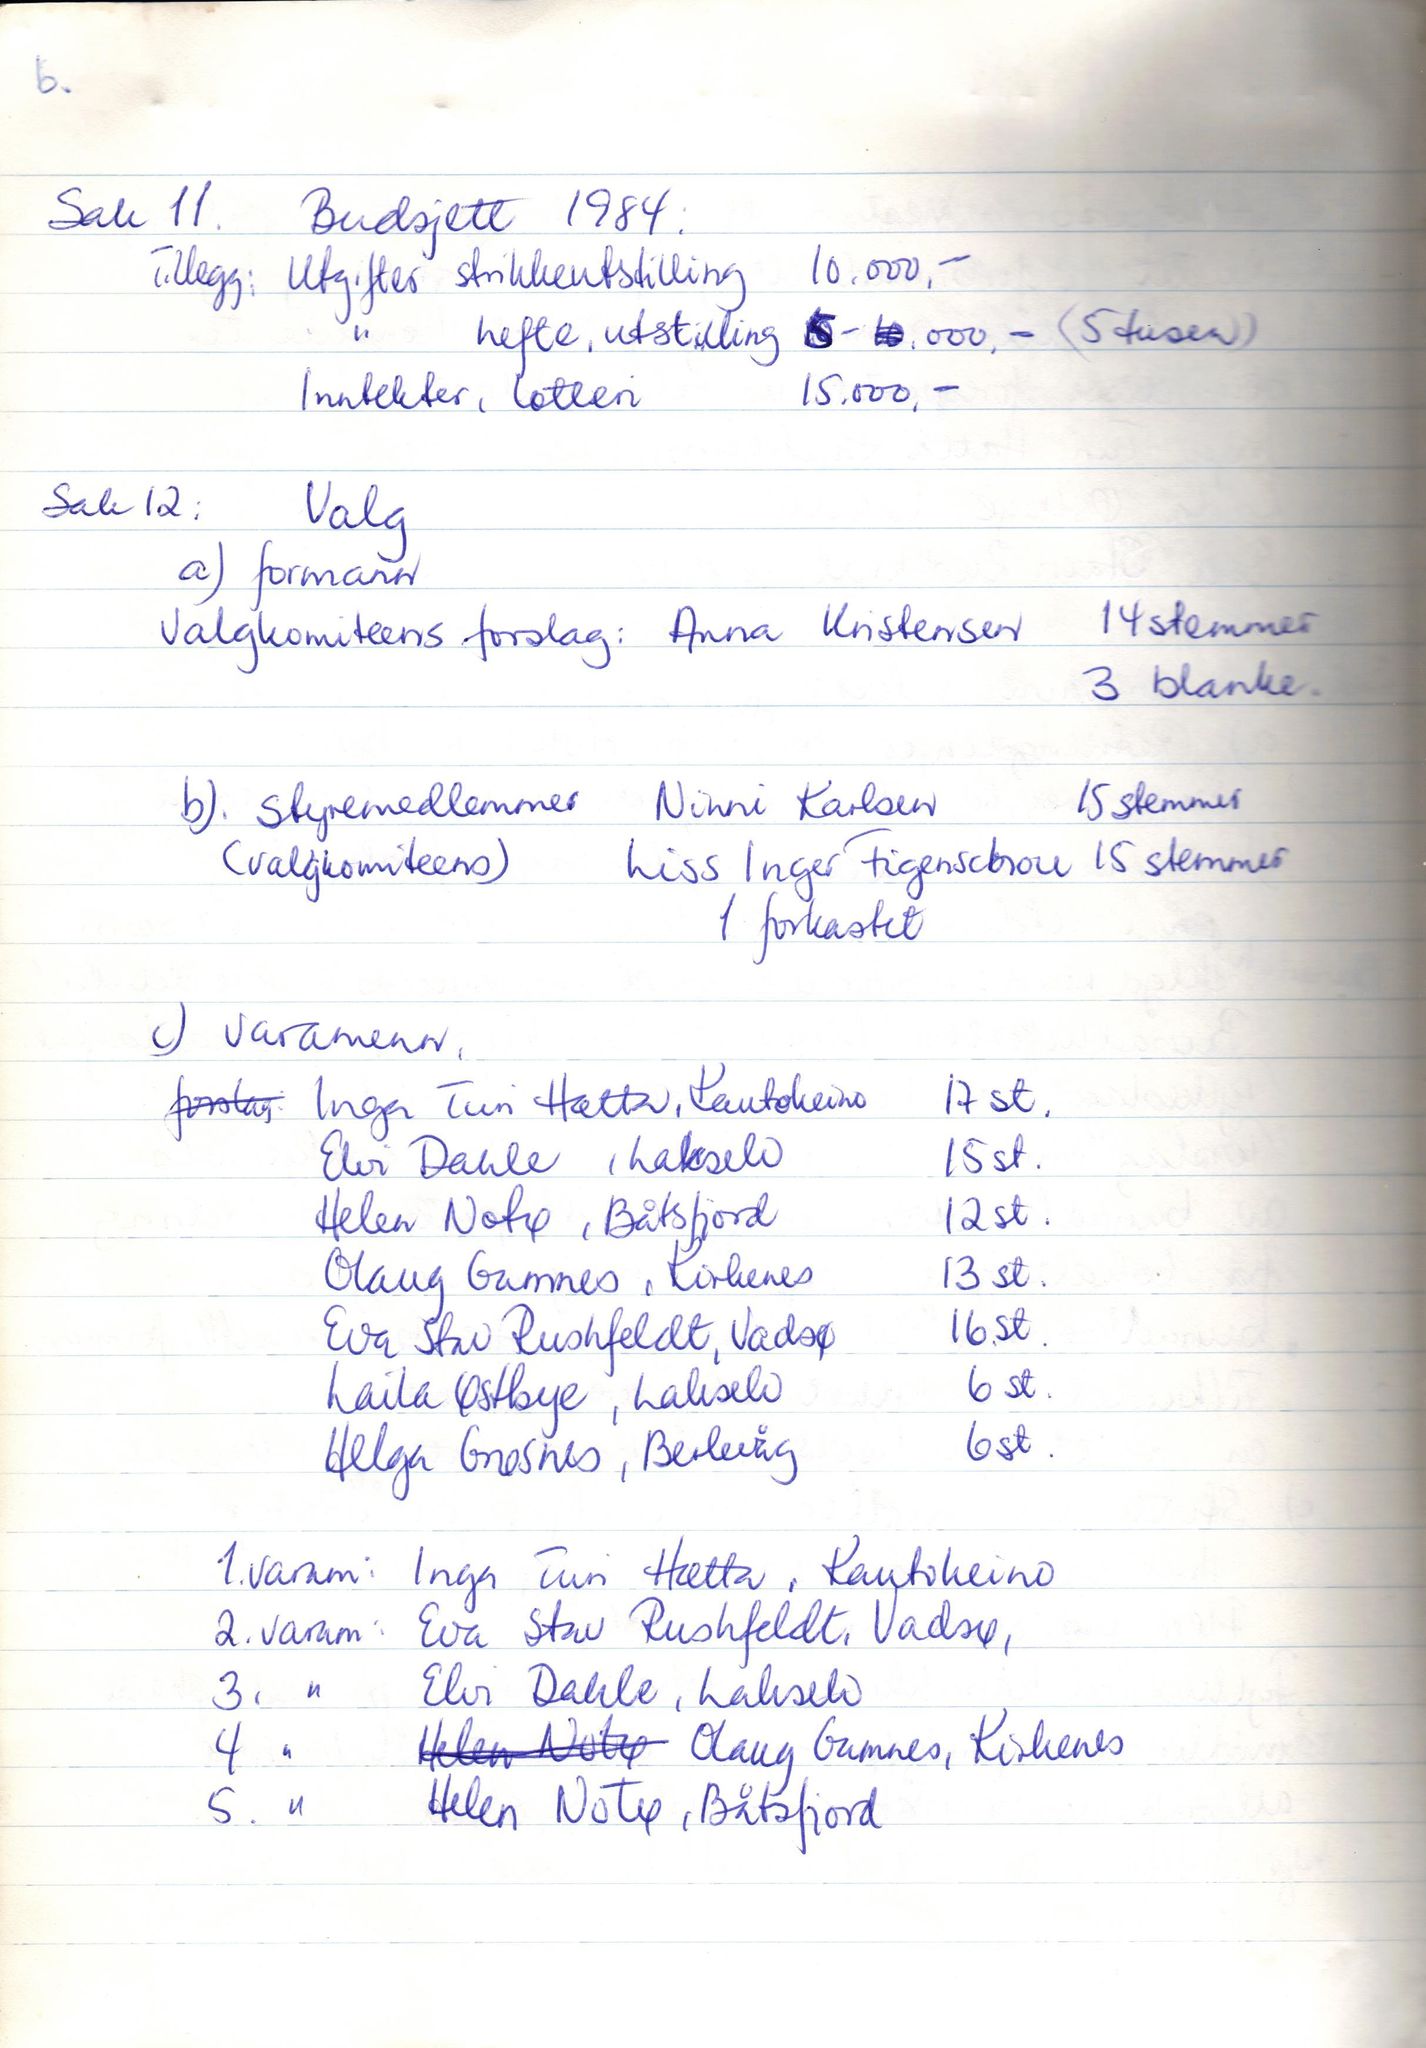 6.
Sak 11. Budsjett 1984.
Tillegg: Utgifter strikkeutstilling 10.000,-
" hefte, utstilling 5 - 10.000,- (5 tusen)
Inntekter, lotteri 15.000,-
Sak 12: Valg
a) formann
Valgkomiteens forslag: Anna Kristensen 14 stemmer
3 blanke.
b). styremedlemmer Ninni Karlsen 15 stemmer
(valgkomiteens) Liss Inger Figenschou 15 stemmer
1 forkastet
c) varamenn.
forslag: Inga Turi Hætta, Kautokeino 17 st.
Elvi Dahle, Lakselv 15 st.
Helen Notø, Båtsfjord 12 st.
Olaug Gamnes, Kirkenes 13 st.
Eva Stav Rushfeldt, Vadsø 16 st.
Laila Østbye, Lakselv 6 st.
Helga Grøsnes, Berlevåg 6 st.
1. varam: Inga Turi Hætta, Kautokeino
2. varam: Eva Stav Rushfeldt, Vadsø,
3. " Elvi Dahle, Lakselv
4 " Helen Notø Olaug Gamnes, Kirkenes
5. " Helen Notø, Båtsfjord